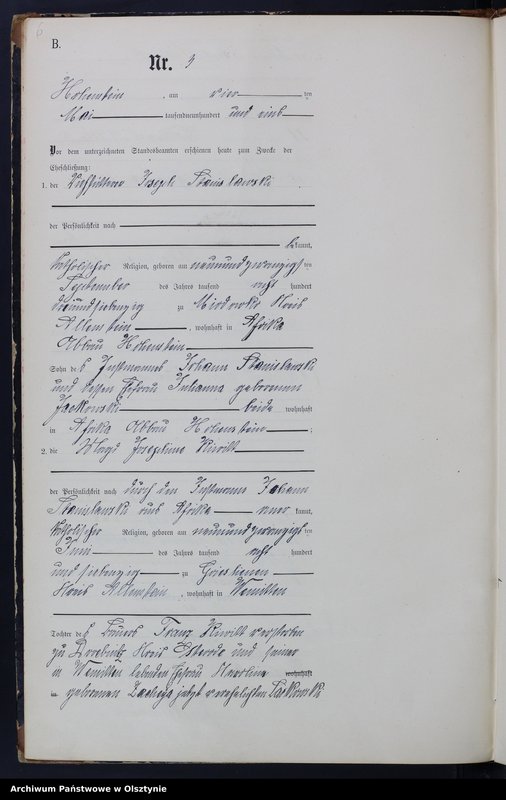 B.
Nr. 9
Hohenstein, am vier ten
Mai tausendneunhundert und eins
Vor dem unterzeichneten Standesbeamten erschienen heute zum Zwecke der
Eheschließung:
1. der Viehfütterer Joseph Stanislawski
der Persönlichkeit nach
bekannt,
katholischer Religion, geboren am neunundzwanzigs ten
September des Jahres tausend acht hundert
dreiundsiebenzig zu Kreis
Allenstein, wohnhaft in Afrika
Abbau Hohenstein
Sohn des Instmannes Johann Stanislawski
und dessen Ehefrau Julianna geborenen
Jackowski beide wohnhaft
in Afrika Abbau Hohenstein;
2. die Magd Josephine Kiwitt
der Persönlichkeit nach durch den Instmann Johann
Stanislawski aus Afrika kannt,
katholischer Religion, geboren am neunundzwanzigs ten
Juni des Jahres tausend acht hundert
und siebenzig zu Grieslienen
Kreis Allenstein, wohnhaft in Wemitten
Tochter des Bauers Franz Kiwitt verstorben
zu Kreis Osterode und seiner
in Wemitten lebenden Ehefrau wohnhaft
in geborenen jetzt verehelichten
Archiwum Państwowe w Olsztynie